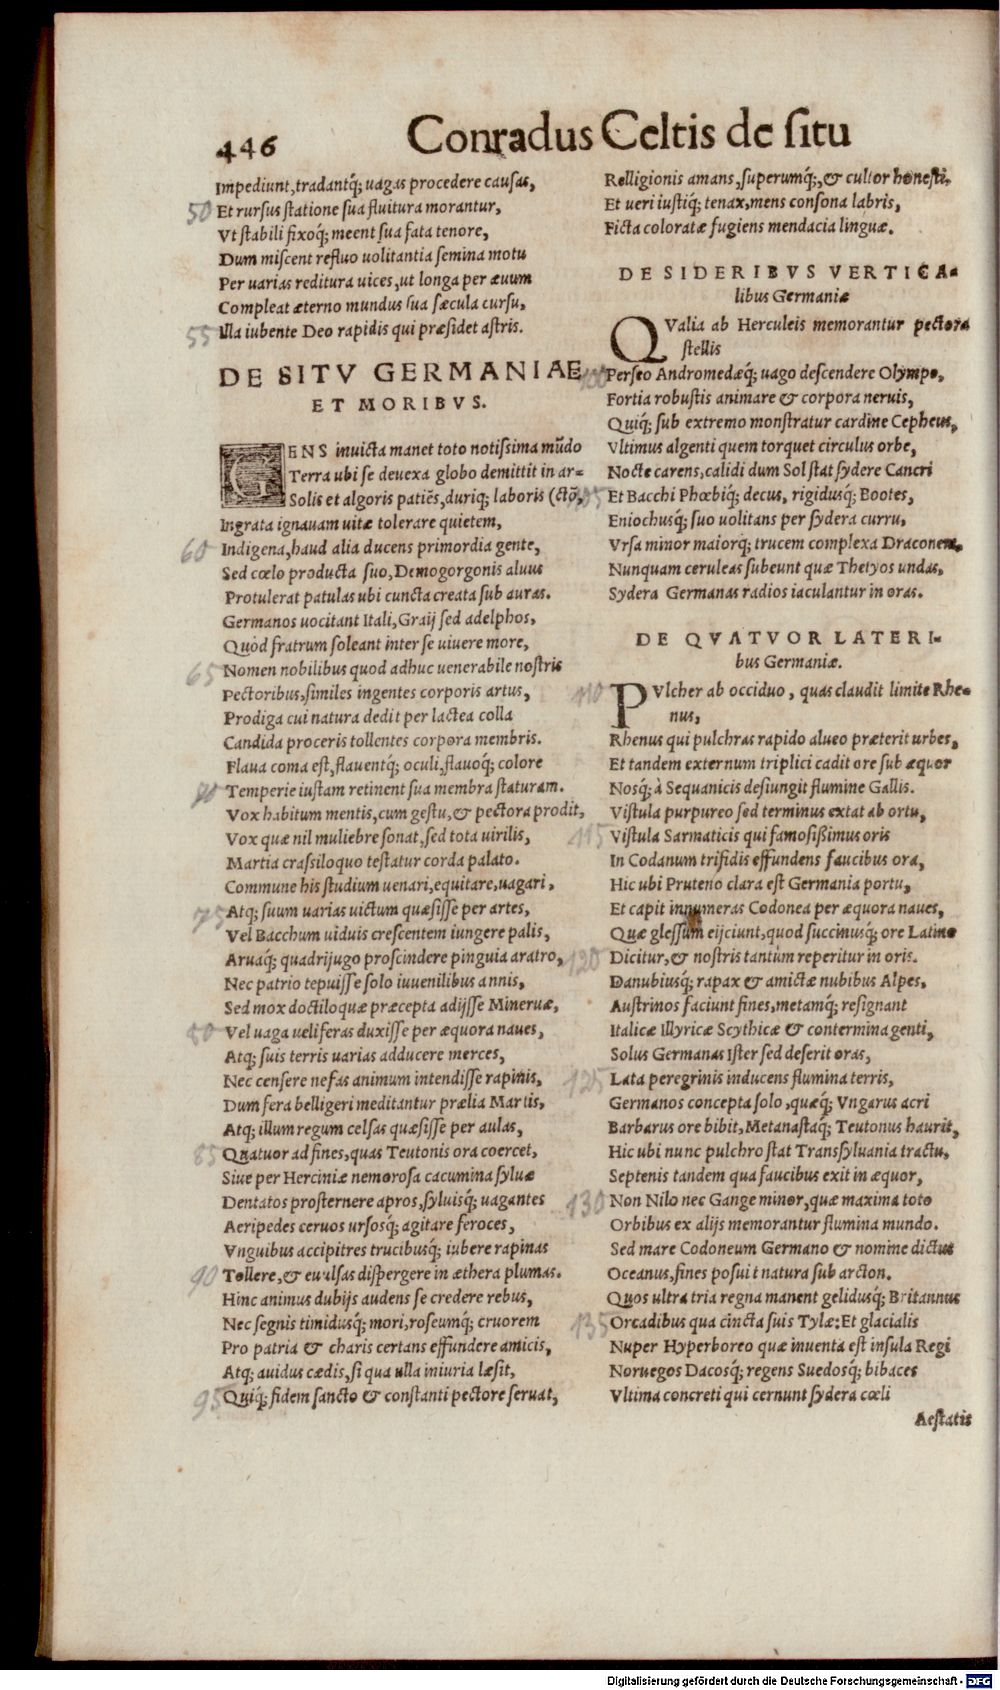 446
Conradus Celtis de situ
Impediunt, tradantq́; uagas procedere causas,
50 Et rursus statione sua fluitura morantur,
Vt stabili fixoq́; meent sua fata tenore,
Dum miscent refluo uolitantia semina motu
Per uarias reditura uices, ut longa per æuum
Compleat æterno mundus sua sæcula cursu,
55 Illa iubente Deo rapidis qui præsidet astris.
DE SITV GERMANIAE
ET MORIBVS.
GENS inuicta manet toto notissima mũdo
Terra ubi se deuexa globo demittit in ar=
Solis et algoris patiẽs, duriq; laboris (ctõ,
Ingrata ignauam uitæ tolerare quietem,
60 Indigena, haud alia ducens primordia gente,
Sed cœlo producta suo, Demogorgonis aluus
Protulerat patulas ubi cuncta creata sub auras.
Germanos uocitant Itali, Graij sed adelphos,
Quòd fratrum soleant inter se uiuere more,
65 Nomen nobilibus quod adhuc uenerabile nostris
Pectoribus, similes ingentes corporis artus,
Prodiga cui natura dedit per lactea colla
Candida proceris tollentes corpora membris.
Flaua coma est, flauentq́; oculi, flauoq́; colore
70 Temperie iustam retinent sua membra staturam.
Vox habitum mentis, cum gestu, & pectora prodit,
Vox quæ nil muliebre sonat, sed tota uirilis,
Martia crassiloquo testatur corda palato.
Commune his studium uenari, equitare, uagari,
75 Atq; suum uarias uictum quæsisse per artes,
Vel Bacchum uiduis crescentem iungere palis,
Aruaq́; quadrijugo proscindere pinguia aratro,
Nec patrio tepuisse solo iuuenilibus annis,
Sed mox doctiloquæ præcepta adijsse Mineruæ,
80 Vel uaga ueliferas duxisse per æquora naues,
Atq; suis terris uarias adducere merces,
Nec censere nefas animum intendisse rapinis,
Dum fera belligeri meditantur prælia Martis,
Atq; illum regum celsas quæsisse per aulas,
85 Quatuor ad fines, quas Teutonis ora coercet,
Siue per Herciniæ nemorosa cacumina syluæ
Dentatos prosternere apros, syluisq́; uagantes
Aeripedes ceruos ursosq́; agitare feroces,
Vnguibus accipitres trucibusq́; iubere rapinas
90 Tollere, & euulsas dispergere in æthera plumas.
Hinc animus dubijs audens se credere rebus,
Nec segnis timidusq́; mori, roseumq́; cruorem
Pro patria & charis certans effundere amicis,
Atq; auidus cædis, si qua ulla iniuria læsit,
95 Quiq́; fidem sancto & constanti pectore seruat,
Relligionis amans, superumq́;, & cultor honesti,
Et ueri iustiq́; tenax, mens consona labris,
Ficta coloratæ fugiens mendacia linguæ.
DE SIDERIBVS VERTICA=
libus Germaniæ
QValia ab Herculeis memorantur pectora
stellis
100 Perseo Andromedæq́; uago descendere Olympo,
Fortia robustis animare & corpora neruis,
Quiq́; sub extremo monstratur cardine Cepheus,
Vltimus algenti quem torquet circulus orbe,
Nocte carens, calidi dum Sol stat sydere Cancri
105 Et Bacchi Phœbiq́; decus, rigidusq́; Bootes,
Eniochusq́; suo uolitans per sydera curru,
Vrsa minor maiorq́; trucem complexa Draconem,
Nunquam ceruleas subeunt quæ Thetyos undas,
Sydera Germanas radios iaculantur in oras.
DE QVATVOR LATERI=
bus Germaniæ.
110 PVlcher ab occiduo, quas claudit limite Rhe=
nus,
Rhenus qui pulchras rapido alueo præterit urbes,
Et tandem externum triplici cadit ore sub æquor
Nosq́; à Sequanicis desiungit flumine Gallis.
Vistula purpureo sed terminus extat ab ortu,
115 Vistula Sarmaticis qui famosißimus oris
In Codanum trifidis effundens faucibus ora,
Hic ubi Pruteno clara est Germania portu,
Et capit innumeras Codonea per æquora naues,
Quæ glessum eijciunt, quod succinusq́; ore Latino
120 Dicitur, & nostris tantùm reperitur in oris.
Danubiusq́; rapax & amictæ nubibus Alpes,
Austrinos faciunt fines, metamq́; resignant
Italicæ Illyricæ Scythicæ & contermina genti,
Solus Germanas Ister sed deserit oras,
125 Lata peregrinis inducens flumina terris,
Germanos concepta solo, quæq́; Vngarus acri
Barbarus ore bibit, Metanastaq́; Teutonus haurit,
Hic ubi nunc pulchro stat Transsyluania tractu,
Septenis tandem qua faucibus exit in æquor,
130 Non Nilo nec Gange minor, quæ maxima toto
Orbibus ex alijs memorantur flumina mundo.
Sed mare Codoneum Germano & nomine dictus
Oceanus, fines posuit natura sub arcton.
Quos ultra tria regna manent gelidusq́; Britannus
135 Orcadibus qua cincta suis Tylæ: Et glacialis
Nuper Hyperboreo quæ inuenta est insula Regi
Noruegos Dacosq́; regens Suedosq́; bibaces
Vltima concreti qui cernunt sydera cœli
Aestatis
Digitalisierung gefördert durch die Deutsche Forschungsgemeinschaft - DFG